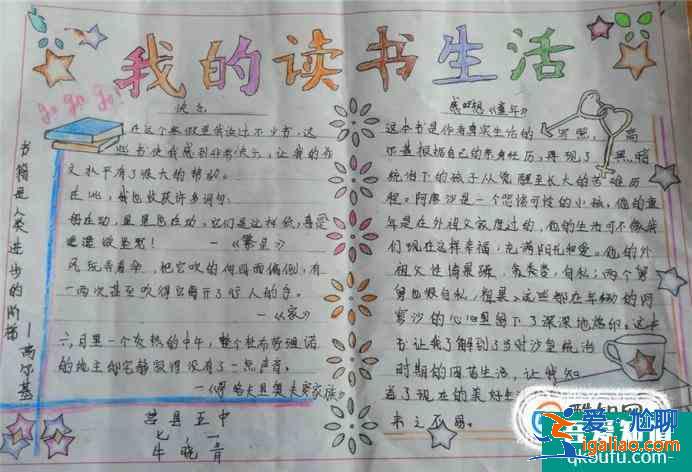 我的读书生活
go go go!
书籍是人类进步的阶梯
—高尔基
快乐
在这个寒假里我读过不少书，这
些书使我感到非常快乐，让我的作
文水平有了很大的帮助。
在此，我也收获许多词句：
母在动，星星也在动，它们是这样低，真是
摇摇欲坠
—《繁星》
风玩弄着伞，把它吹的向四面偏倒，有
一两次甚至吹得它离开了行人的手。
—《家》
六月里一个炎热的中午，整个杜布
的地主邸宅静寂得没有了一点声音。
家族》
莒县五中
七 一
牛晓音
感《童年》
这本书是作者真实生活的写照，高
尔基根据自己的亲身经历，再现了黑暗
统治下的孩子从觉醒至长大的苦难历
程。阿廖沙是一个悲惨可怜的小孩，他的童
年是在外祖父家度过的，他的生活可不像我
们现在这样幸福，充满阳光和爱。他的外
祖父性情暴躁、贪婪、自私；两个舅
舅也狠自私、粗暴。这些都在年幼的阿
廖沙的心里留下了深深地烙印。这本
书让我了解到了当时沙皇统治
时期的困苦生活，让我知
道了现在的美好生
来之不易。
爱尴聊
igaliao.com
qk.sufu.com